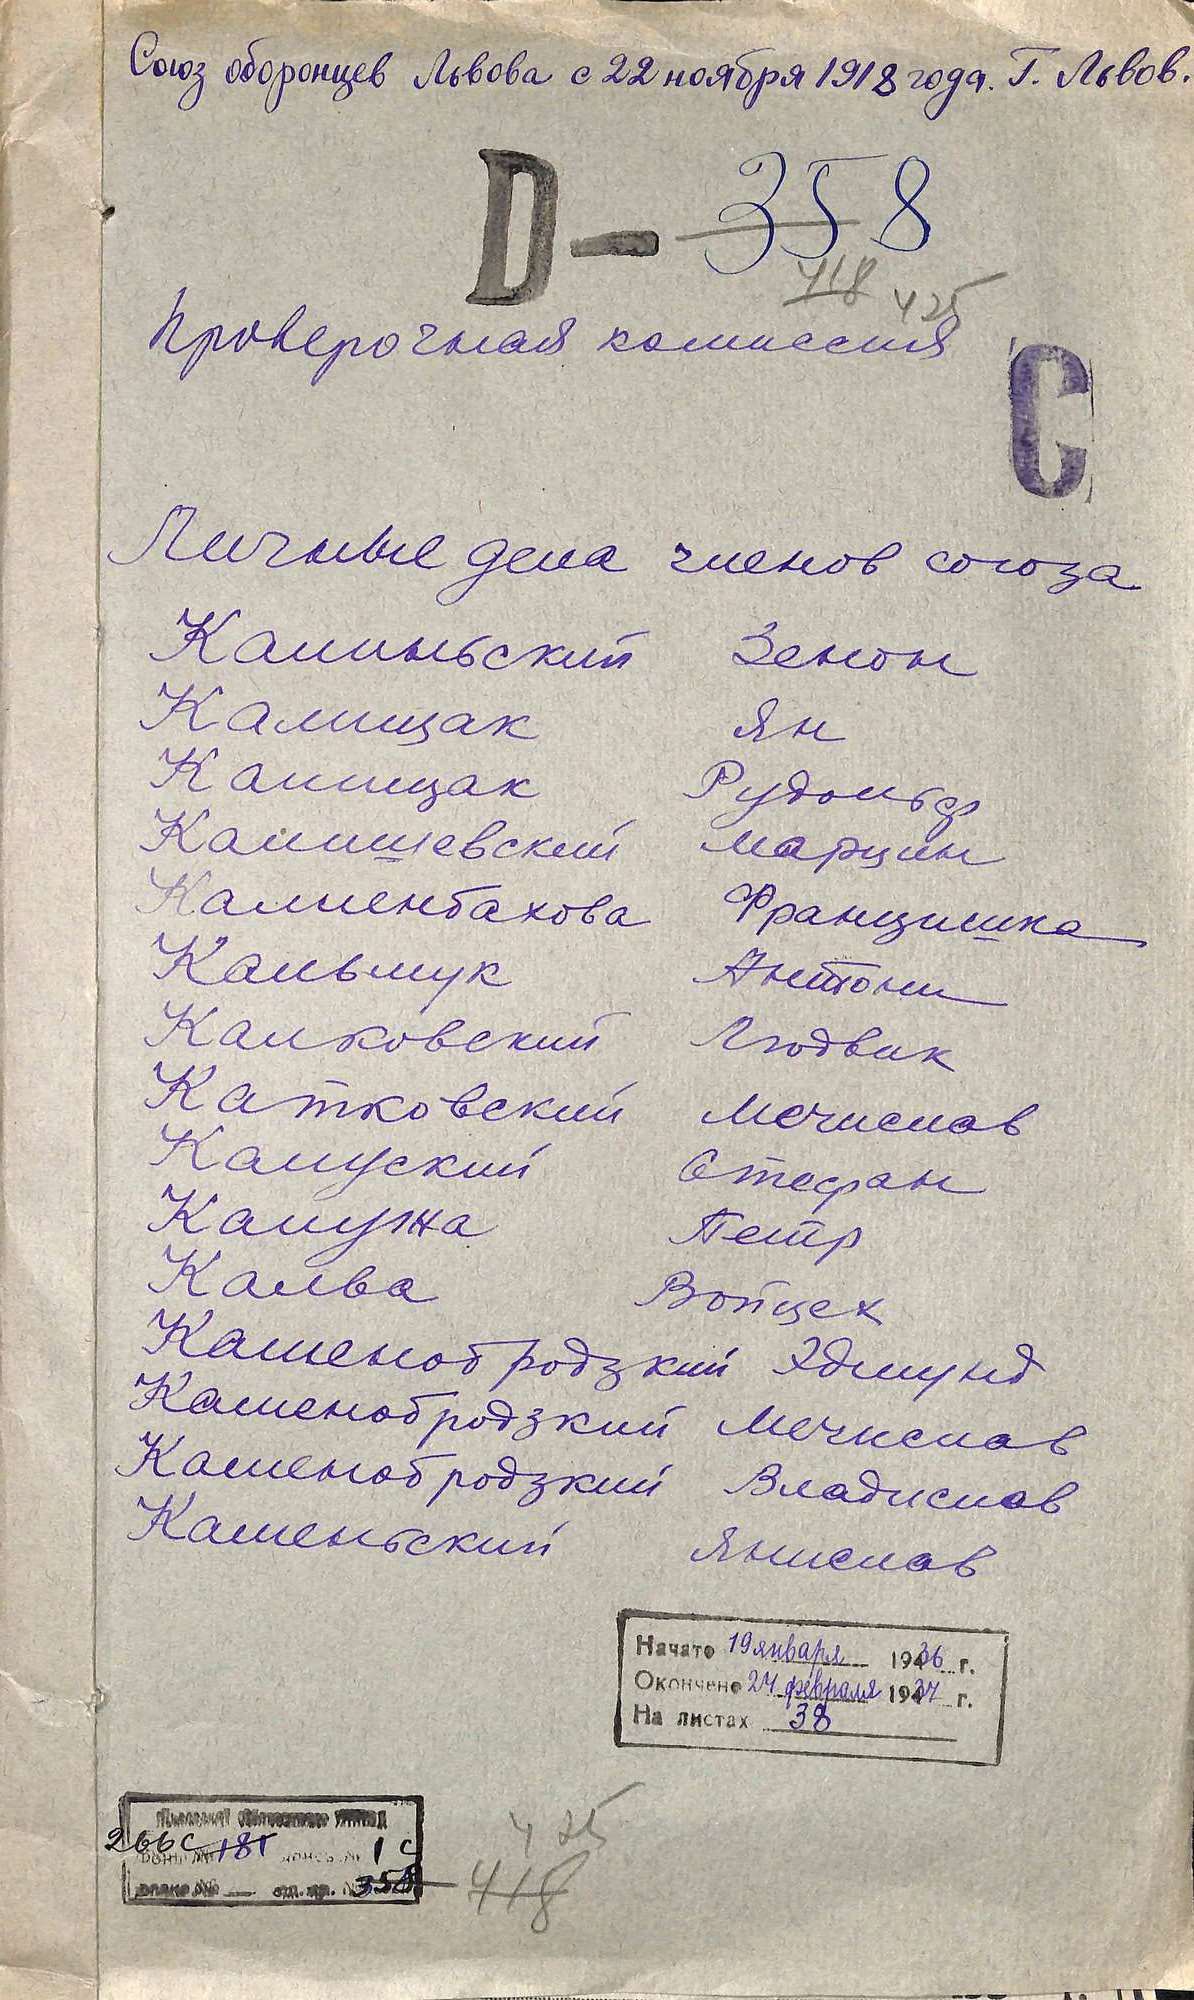 Союз оборонцев Львова с 22 ноября 1918 года. Г. Львов.
D — 358
418 425
Проверочная комиссия
С
Личные дела членов союза
Калиньский Зенон
Калищак Ян
Калищак Рудольф
Калишевский Марцин
Калленбахова Францишка
Кальмук Антони
Калковский Людвик
Катковский Мечислав
Калуский Стефан
Калужа Петр
Калва Войцех
Каменобродзкий Эдмунд
Каменобродзкий Мечислав
Каменобродзкий Владислав
Каменьский Янислав
Начато 19 января 1936 г.
Окончено 24 февраля 1937 г.
На листах 38
266с 181 1 с
ед. хр. № 358
425
418